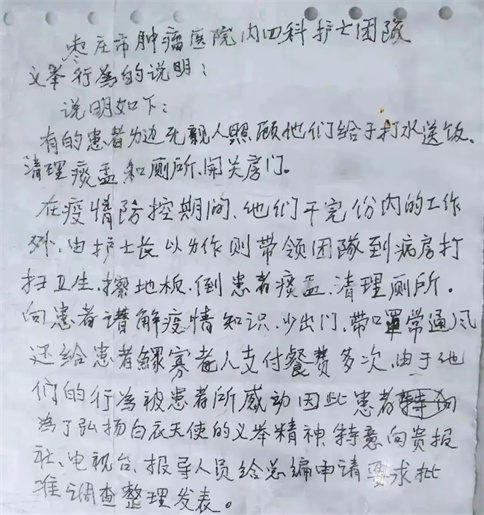 枣庄市肿瘤医院内四科护士团队
义举行為的说明：
说明如下：
有的患者身边无親人照顾他们给于打水送饭。
清理痰盂和厕所、開关房门。
在疫情防控期间、他们干完份内的工作
外、由护士长以身作则带领团隊到病房打
扫卫生、擦地板、倒患者痰盂、清理厕所。
向患者讲解疫情知识、少出门、带口罩常通风
还给患者鳏寡老人支付餐费多次、由于他
们的行為被患者所感动因此患者
為了弘扬白衣天使的义举精神、特意向贵报
社、电视台、报导人员给总编申请要求批
准调查整理发表。